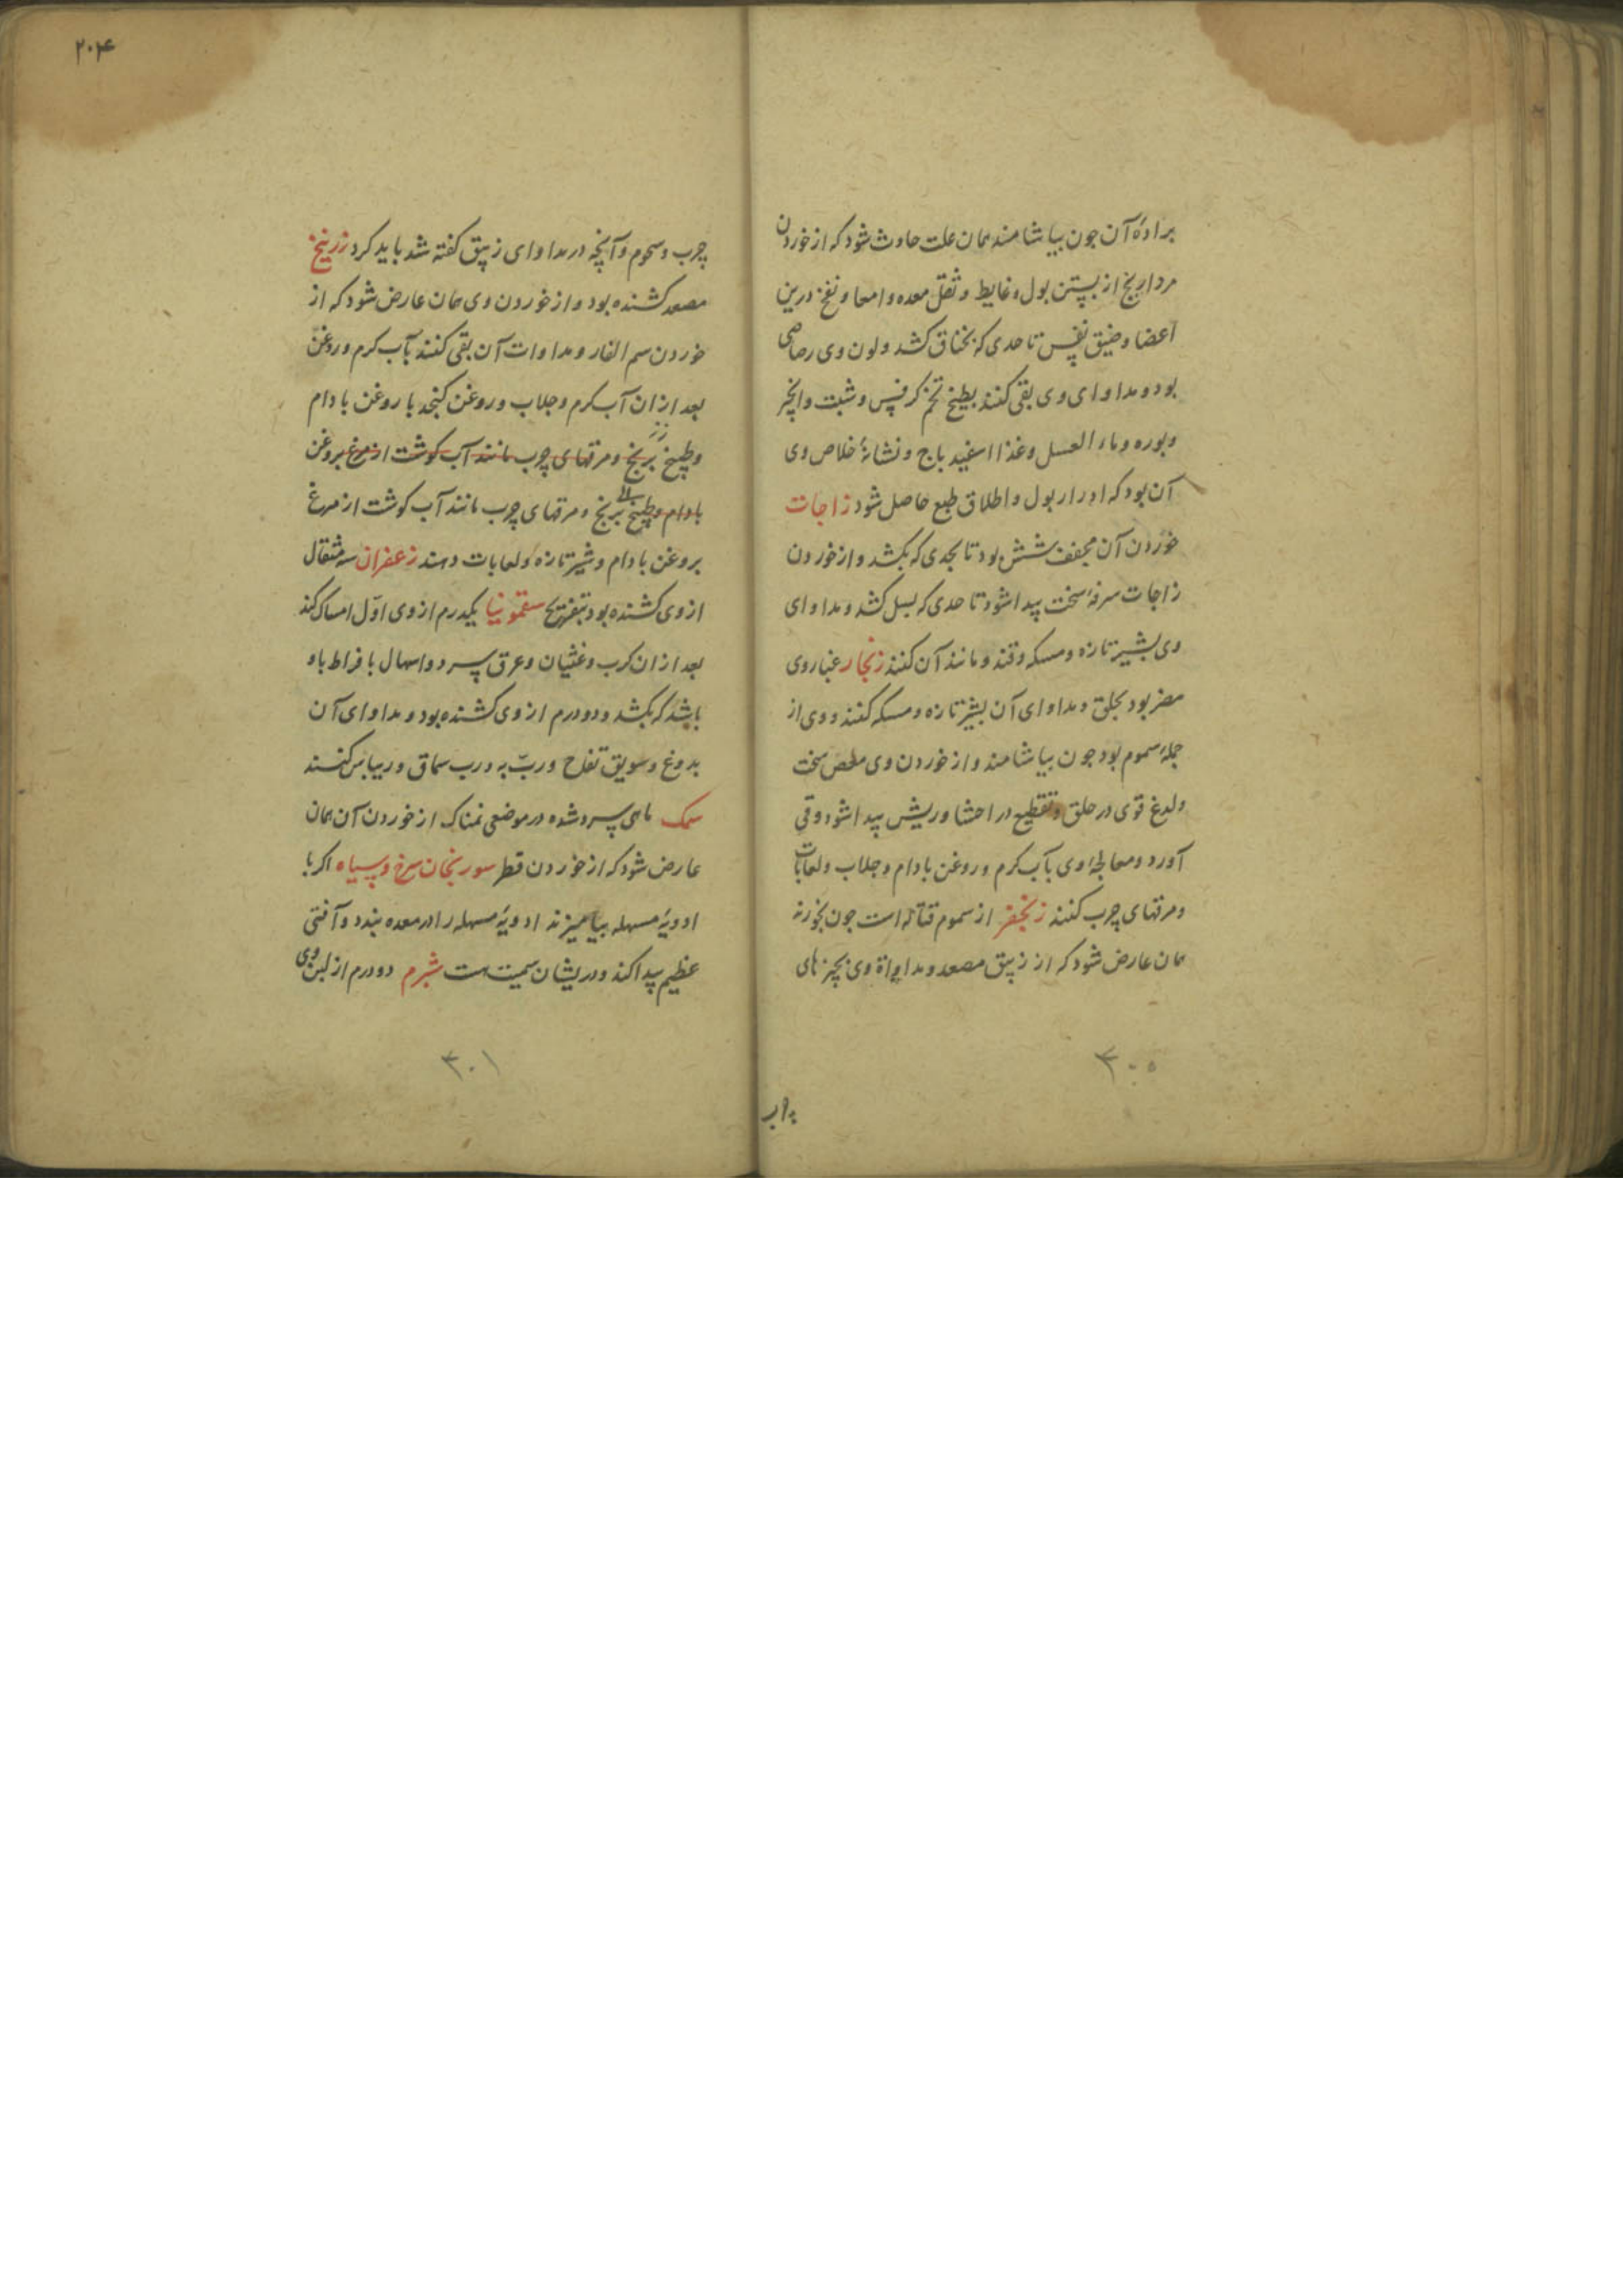 برادهٔ آن جون بیاشامند همان علت حادث شود که از خوردن
مرداربخ از بستن بول و غایط و ثقل معده و امعا و نفخ درین
اعضا و ضیق نفس تا حدی که بخناق کشد و لون وی رصاصی
بود و مداوای وی بقی کنند بطبیخ تخم کرفس و شبت و انجر
و بوره و ماء العسل و غذا اسفیدباج و نشانهٔ خلاص وی
آن بود که ادرار بول و اطلاق طبع حاصل شود زاجات
خوردن آن مجفف شش بود تا بحدی که بکشد و از خوردن
زاجات سرفهٔ سخت پیدا شود تا حدی که بسل کشد و مداوای
وی بشیر تازه و مسکه و قند و مانند آن کنند زنجار غبار وی
مضر بود بحلق و مداوای آن بشیر تازه و مسکه کنند و وی از
جملهٔ سموم بود جون بیاشامند و از خوردن وی مغص سخت
و لدغ قوی در حلق و تقطیع در احشا و ریش پیدا شود و قی
آورد و معالجهٔ وی بآب کرم و روغن بادام و جلاب و لعابات
و مرقهای چرب کنند زنجفر از سموم قتاله است جون بخورند
همان عارض شود که از زیبق مصعد و مداواة وی بچیزهای
۳۰۰
چرب
۲۰۴
چرب و سحوم و آنچه در مداوای زیبق کفته شد باید کرد زرنیخ
مصعد کشنده بود و از خوردن وی همان عارض شود که از
خوردن سم الفار و مداوات آن بقی کنند بآب کرم و روغن
بعد ازان آب کرم و جلاب و روغن کنجد یا روغن بادام
و طبیخ برنج و مرقهای چرب مانند آب کوشت از مرغ بروغن
بادام و طبیخ برنج و مرقهای چرب مانند آب کوشت از مرغ
بروغن بادام و شیر تازه و لعابات دهند زعفران سه مثقال
از وی کشنده بود بتفریح سقمونیا یکدرم از وی اوّل امساک کند
بعد ازان کرب و غثیان و عرق سرد و اسهال بافراط باو
باشد که بکشد و دو درم از وی کشنده بود و مداوای آن
بدوغ و سویق تفاح و ربّ به و رب سماق و ریباس کنند
سمک ماهی سرد شده در موضعی نمناک از خوردن آن همان
عارض شود که از خوردن فطر سورنجان سرخ و سیاه اکر با
ادویهٔ مسهله بیامیزند ادویهٔ مسهله را در معده بندد و آفتی
عظیم پیدا کند و در یشان سمیت هست شبرم دو درم از لبن وی
۳۰۱